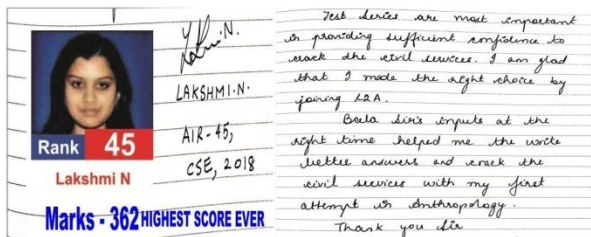 N.
LAKSHMI.N.
AIR-45,
CSE, 2018
Rank 45
Lakshmi N
Marks - 362 HIGHEST SCORE EVER
Test Series are most important
in providing sufficient confidence to
crack the civil services. I am glad
that I made the right choice by
joining L2A.
Bala Sir's inputs at the
right time helped me the write
better answers and crack the
civil services with my first
attempt in Anthropology.
Thank you Sir